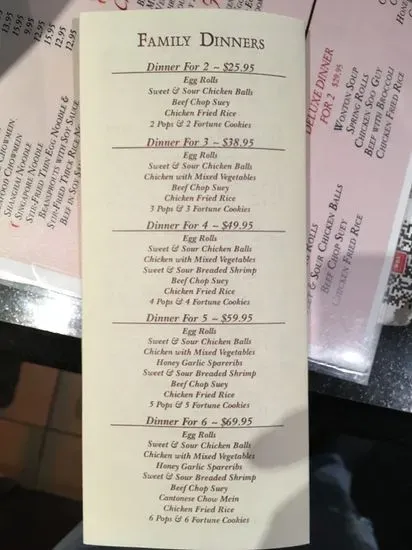 FAMILY DINNERS
Dinner For 2 ~ $25.95
Egg Rolls
Sweet & Sour Chicken Balls
Beef Chop Suey
Chicken Fried Rice
2 Pops & 2 Fortune Cookies
Dinner For 3 ~ $38.95
Egg Rolls
Sweet & Sour Chicken Balls
Chicken with Mixed Vegetables
Beef Chop Suey
Chicken Fried Rice
3 Pops & 3 Fortune Cookies
Dinner For 4 ~ $49.95
Egg Rolls
Sweet & Sour Chicken Balls
Chicken with Mixed Vegetables
Sweet & Sour Breaded Shrimp
Beef Chop Suey
Chicken Fried Rice
4 Pops & 4 Fortune Cookies
Dinner For 5 ~ $59.95
Egg Rolls
Sweet & Sour Chicken Balls
Chicken with Mixed Vegetables
Honey Garlic Spareribs
Sweet & Sour Breaded Shrimp
Beef Chop Suey
Chicken Fried Rice
5 Pops & 5 Fortune Cookies
Dinner For 6 ~ $69.95
Egg Rolls
Sweet & Sour Chicken Balls
Chicken with Mixed Vegetables
Honey Garlic Spareribs
Sweet & Sour Breaded Shrimp
Beef Chop Suey
Cantonese Chow Mein
Chicken Fried Rice
6 Pops & 6 Fortune Cookies
13.95
15.95
9.95
12.95
12.95
15.95
CHOWMEIN
SHANGHAI NOODLE
SINGAPORE NOODLE
STIR-FRIED THIN EGG NOODLE &
BEANSPROUTS WITH SOY SAUCE
STIR-FRIED THICK RICE
BEEF IN SOY
DELUXE DINNER
FOR 2 $29.95
WONTON SOUP
SPRING ROLLS
CHICKEN SOO GUY
BEEF WITH BROCCOLI
CHICKEN FRIED RICE
ROLLS
& SOUR CHICKEN BALLS
BEEF CHOP SUEY
CHICKEN FRIED RICE